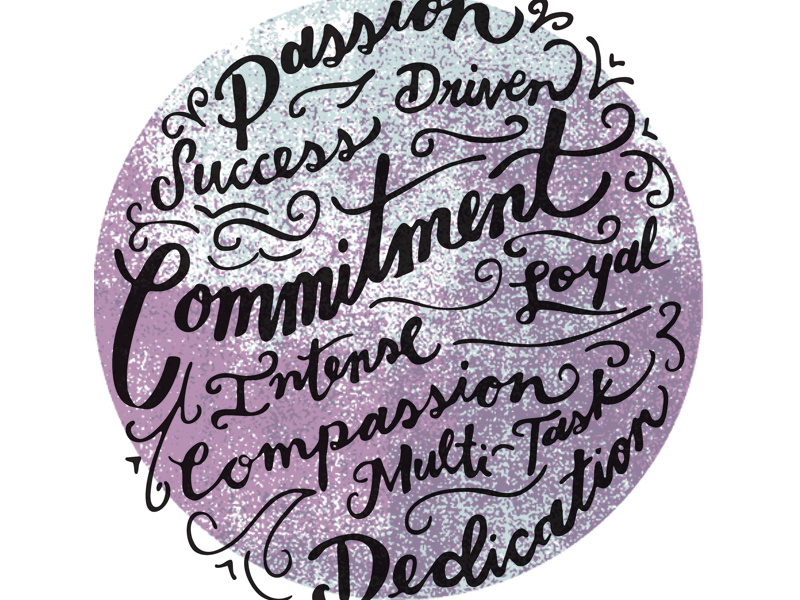 Passion
Driven
Success
Commitment
Loyal
Intense
Compassion
Multi-Task
Dedication